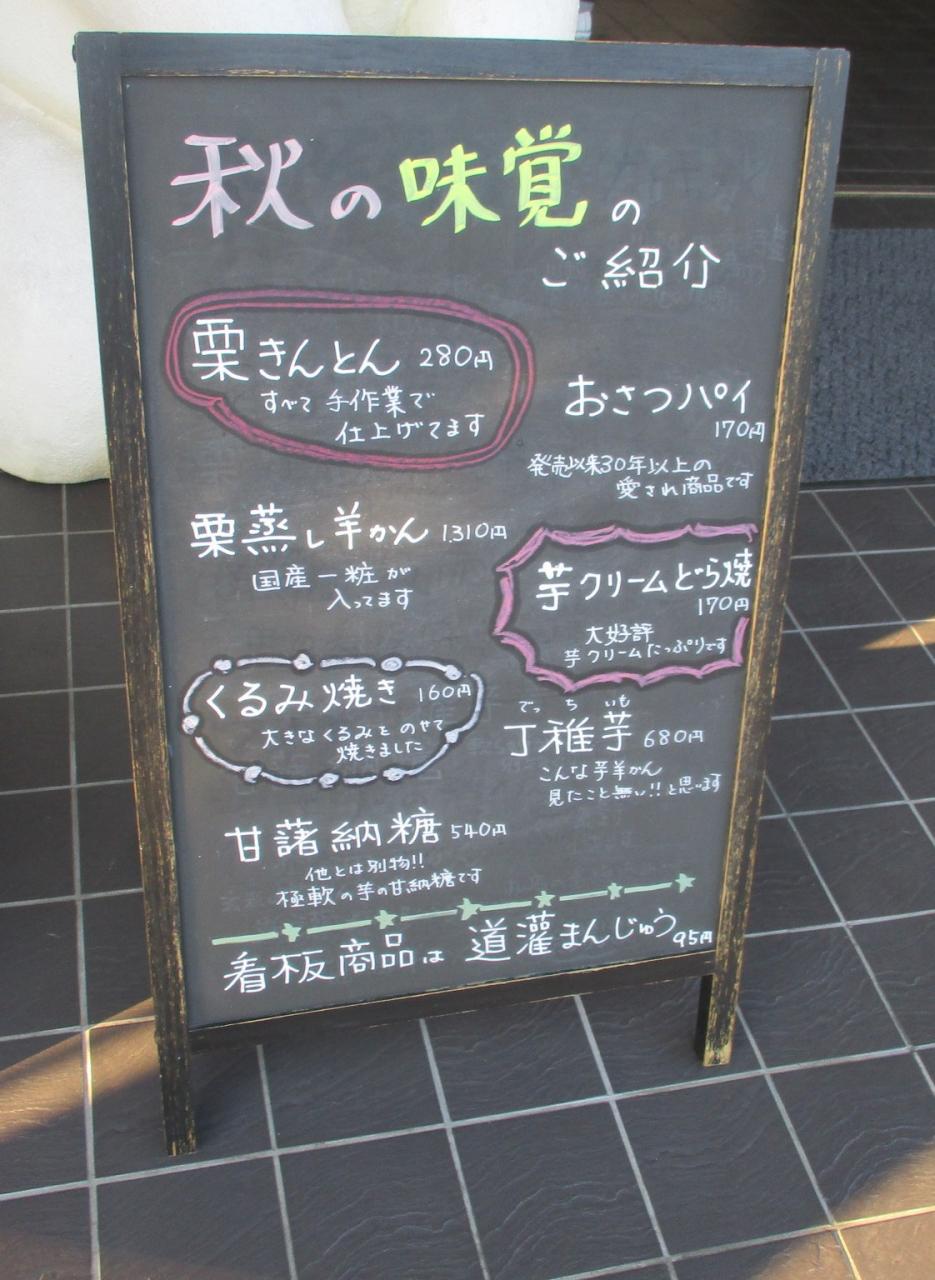 秋の味覚の
ご紹介
栗きんとん 280円
すべて手作業で
仕上げてます
おさつパイ
170円
発売以来30年以上の
愛され商品です
栗蒸し羊かん 1.310円
国産一粒が
入ってます
芋クリームどら焼
170円
大好評
芋クリームたっぷりです
くるみ焼き 160円
大きなくるみを のせて
焼きました
でっち いも
丁稚芋 680円
こんな芋羊かん
見たこと無い!!と思います
甘藷納糖 540円
他とは別物!!
極軟の芋の甘納糖です
看板商品は 道灌まんじゅう 95円